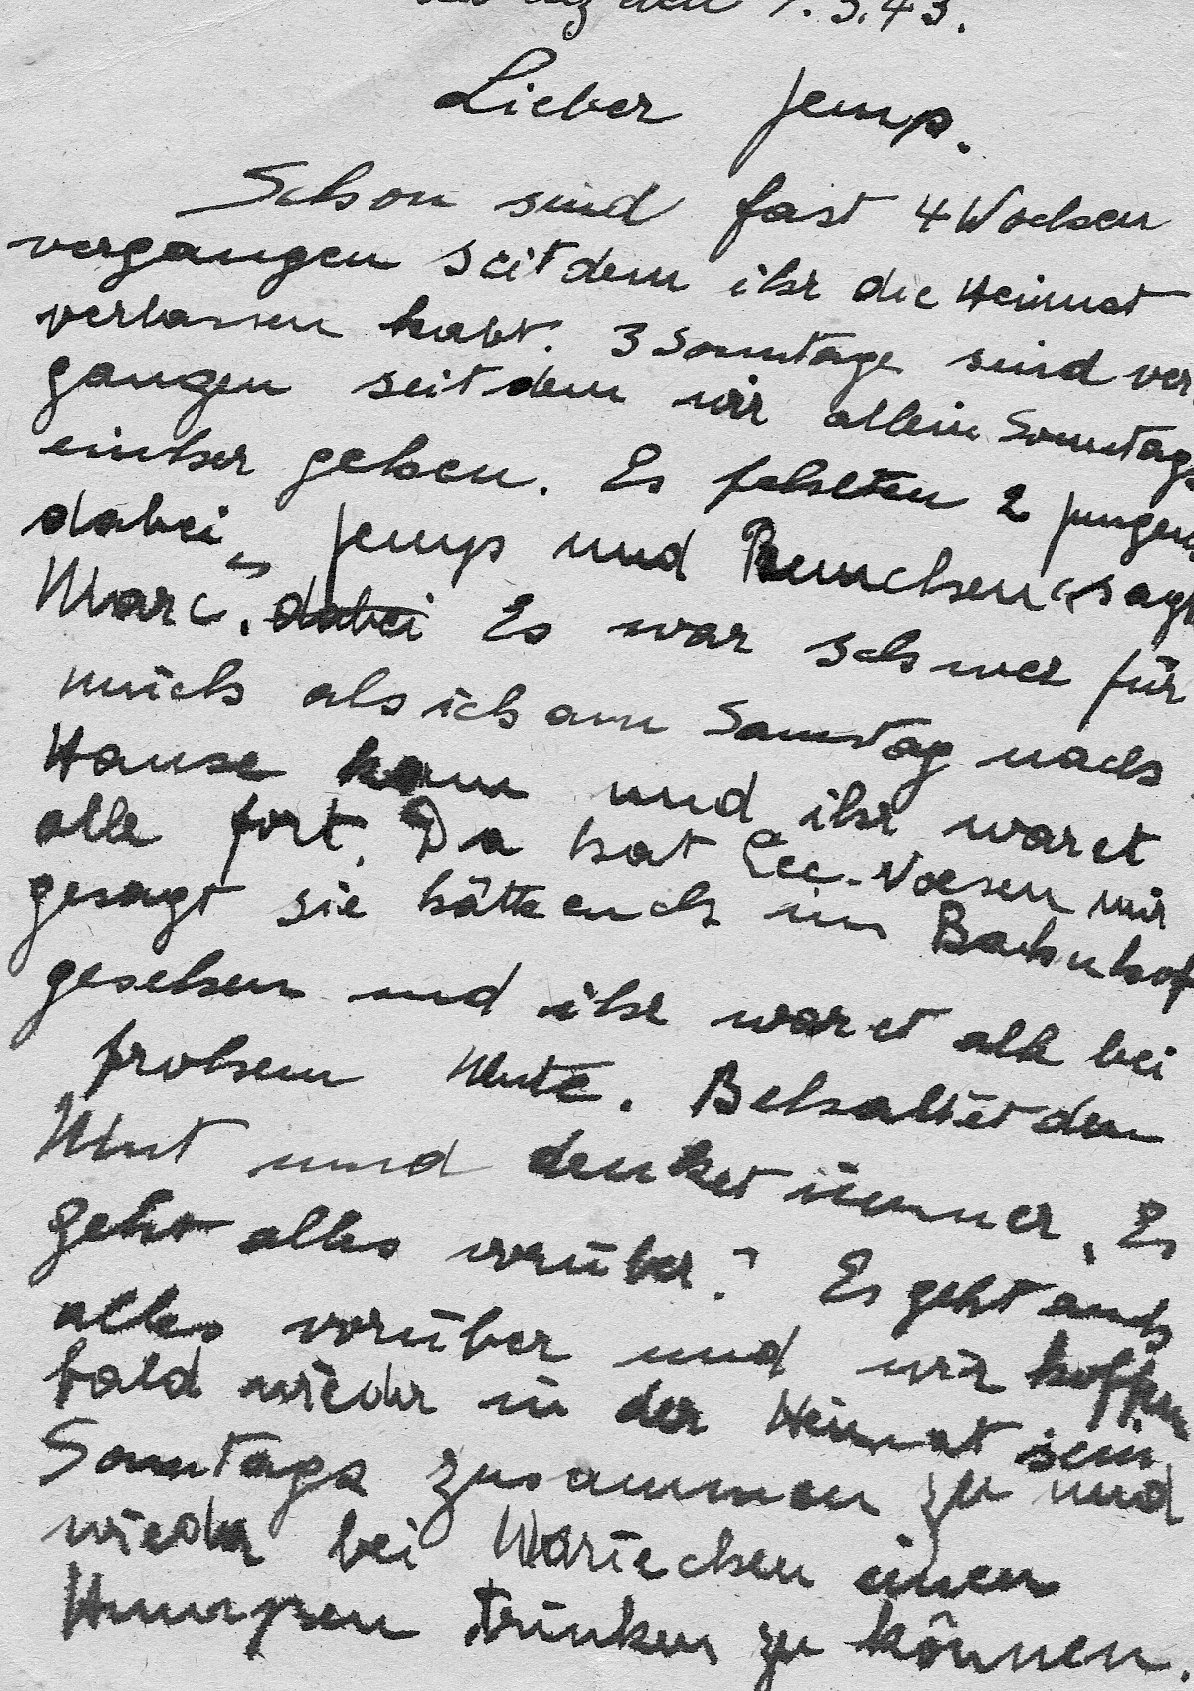 den 7.3.43.
Lieber Jemp.
Schon sind fast 4 Wochen
vergangen seitdem ihr die Heimat
verlassen habt. 3 Sonntage sind ver
gangen seitdem wir allein Sonntags
einher gehen. Es fehlten 2 Jungen
dabei „Jemp und Remchen“ sagt
Marc. dabei Es war schwer für
mich als ich am Samstag nach
Hause kam und ihr waret
alle fort. Da hat mir
gesagt sie hätte euch im Bahnhof
gesehen und ihr waret alle bei
frohem Mute. Behaltet den
Mut und denket immer „Es
geht alles vorüber“ Es geht auch
alles vorüber und wir hoffen
bald wieder in der Heimat sein
Sonntags zusammen zu und
wieder bei Mariechen einen
Humpen trinken zu können.